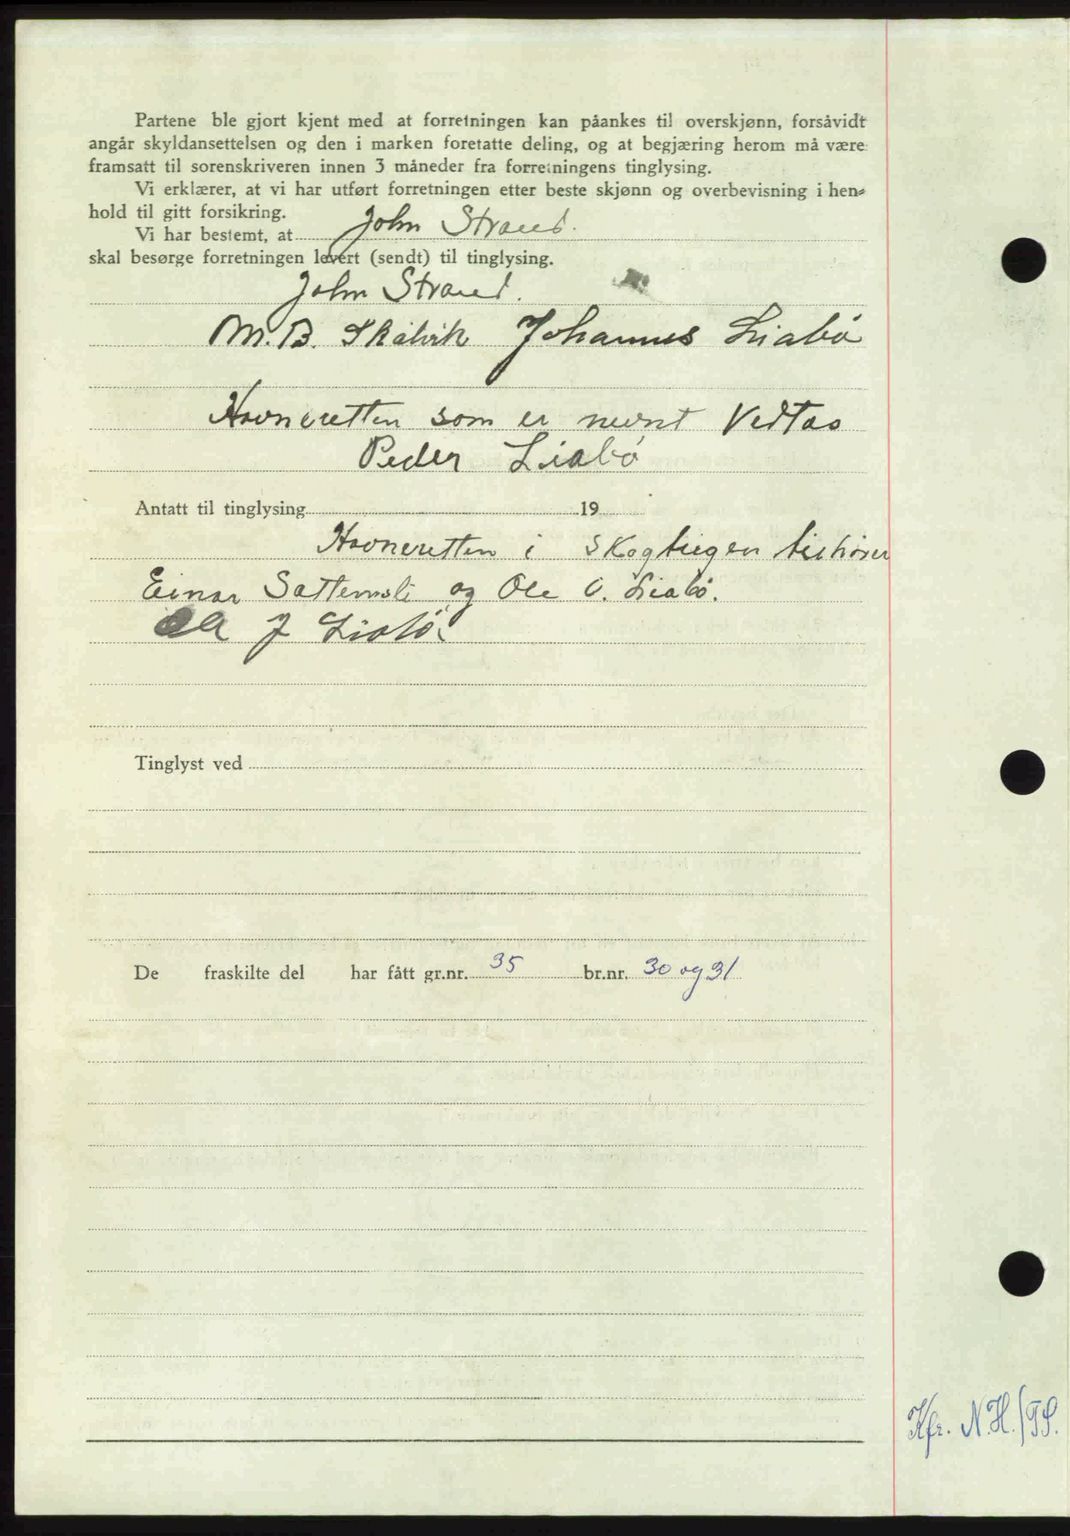 Partene ble gjort kjent med at forretningen kan påankes til overskjønn, forsåvidt
angår skyldansettelsen og den i marken foretatte deling, og at begjæring herom må være
framsatt til sorenskriveren innen 3 måneder fra forretningens tinglysing.
Vi erklærer, at vi har utført forretningen etter beste skjønn og overbevisning i hen-
hold til gitt forsikring.
Vi har bestemt, at John Strand.
skal besørge forretningen levert (sendt) til tinglysing.
John Strand.
M.B. Skålvik Johannes Liabø
Havneretten som er nevnt Vedtas
Peder Liabø
Antatt til tinglysing 19
Havneretten i Skogteigen tilhører
Einar Settemsli og Ole O. Liabø.
J Liabø.
Tinglyst ved
De fraskilte del har fått gr.nr. 35 br.nr. 30 og 31
Kfr. N.H./